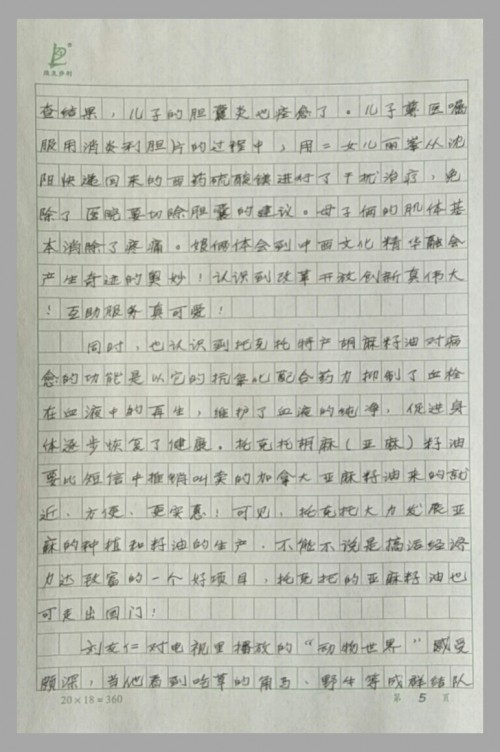 查结果，儿子的胆囊炎也痊愈了。儿子遵医嘱
服用消炎利胆片的过程中，用二女儿丽峯从沈
阳快递回来的西药硫酸镁进行了干扰治疗，免
除了医院要切除胆囊的建议。母子俩的肌体基
本消除了疼痛。娘俩体会到中西文化精华融会
产生奇迹的奥妙！认识到改革开放创新真伟大
！互助服务真可爱！
同时，也认识到托克托特产胡麻籽油对病
愈的功能是以它的抗氧化配合药力抑制了血栓
在血液中的再生，维护了血液的纯净，促进身
体逐步恢复了健康。托克托胡麻（亚麻）籽油
要比短信中推销叫卖的加拿大亚麻籽油来的就
近、方便、更实惠；可见，托克托大力发展亚
麻的种植和籽油的生产，不能不说是搞活经济
力达致富的一个好项目，托克托的亚麻籽油也
可走出国门！
刘友仁对电视里播放的“动物世界”感受
颇深，当他看到吃草的角马、野牛等成群结队
20×18=360 第 5 页